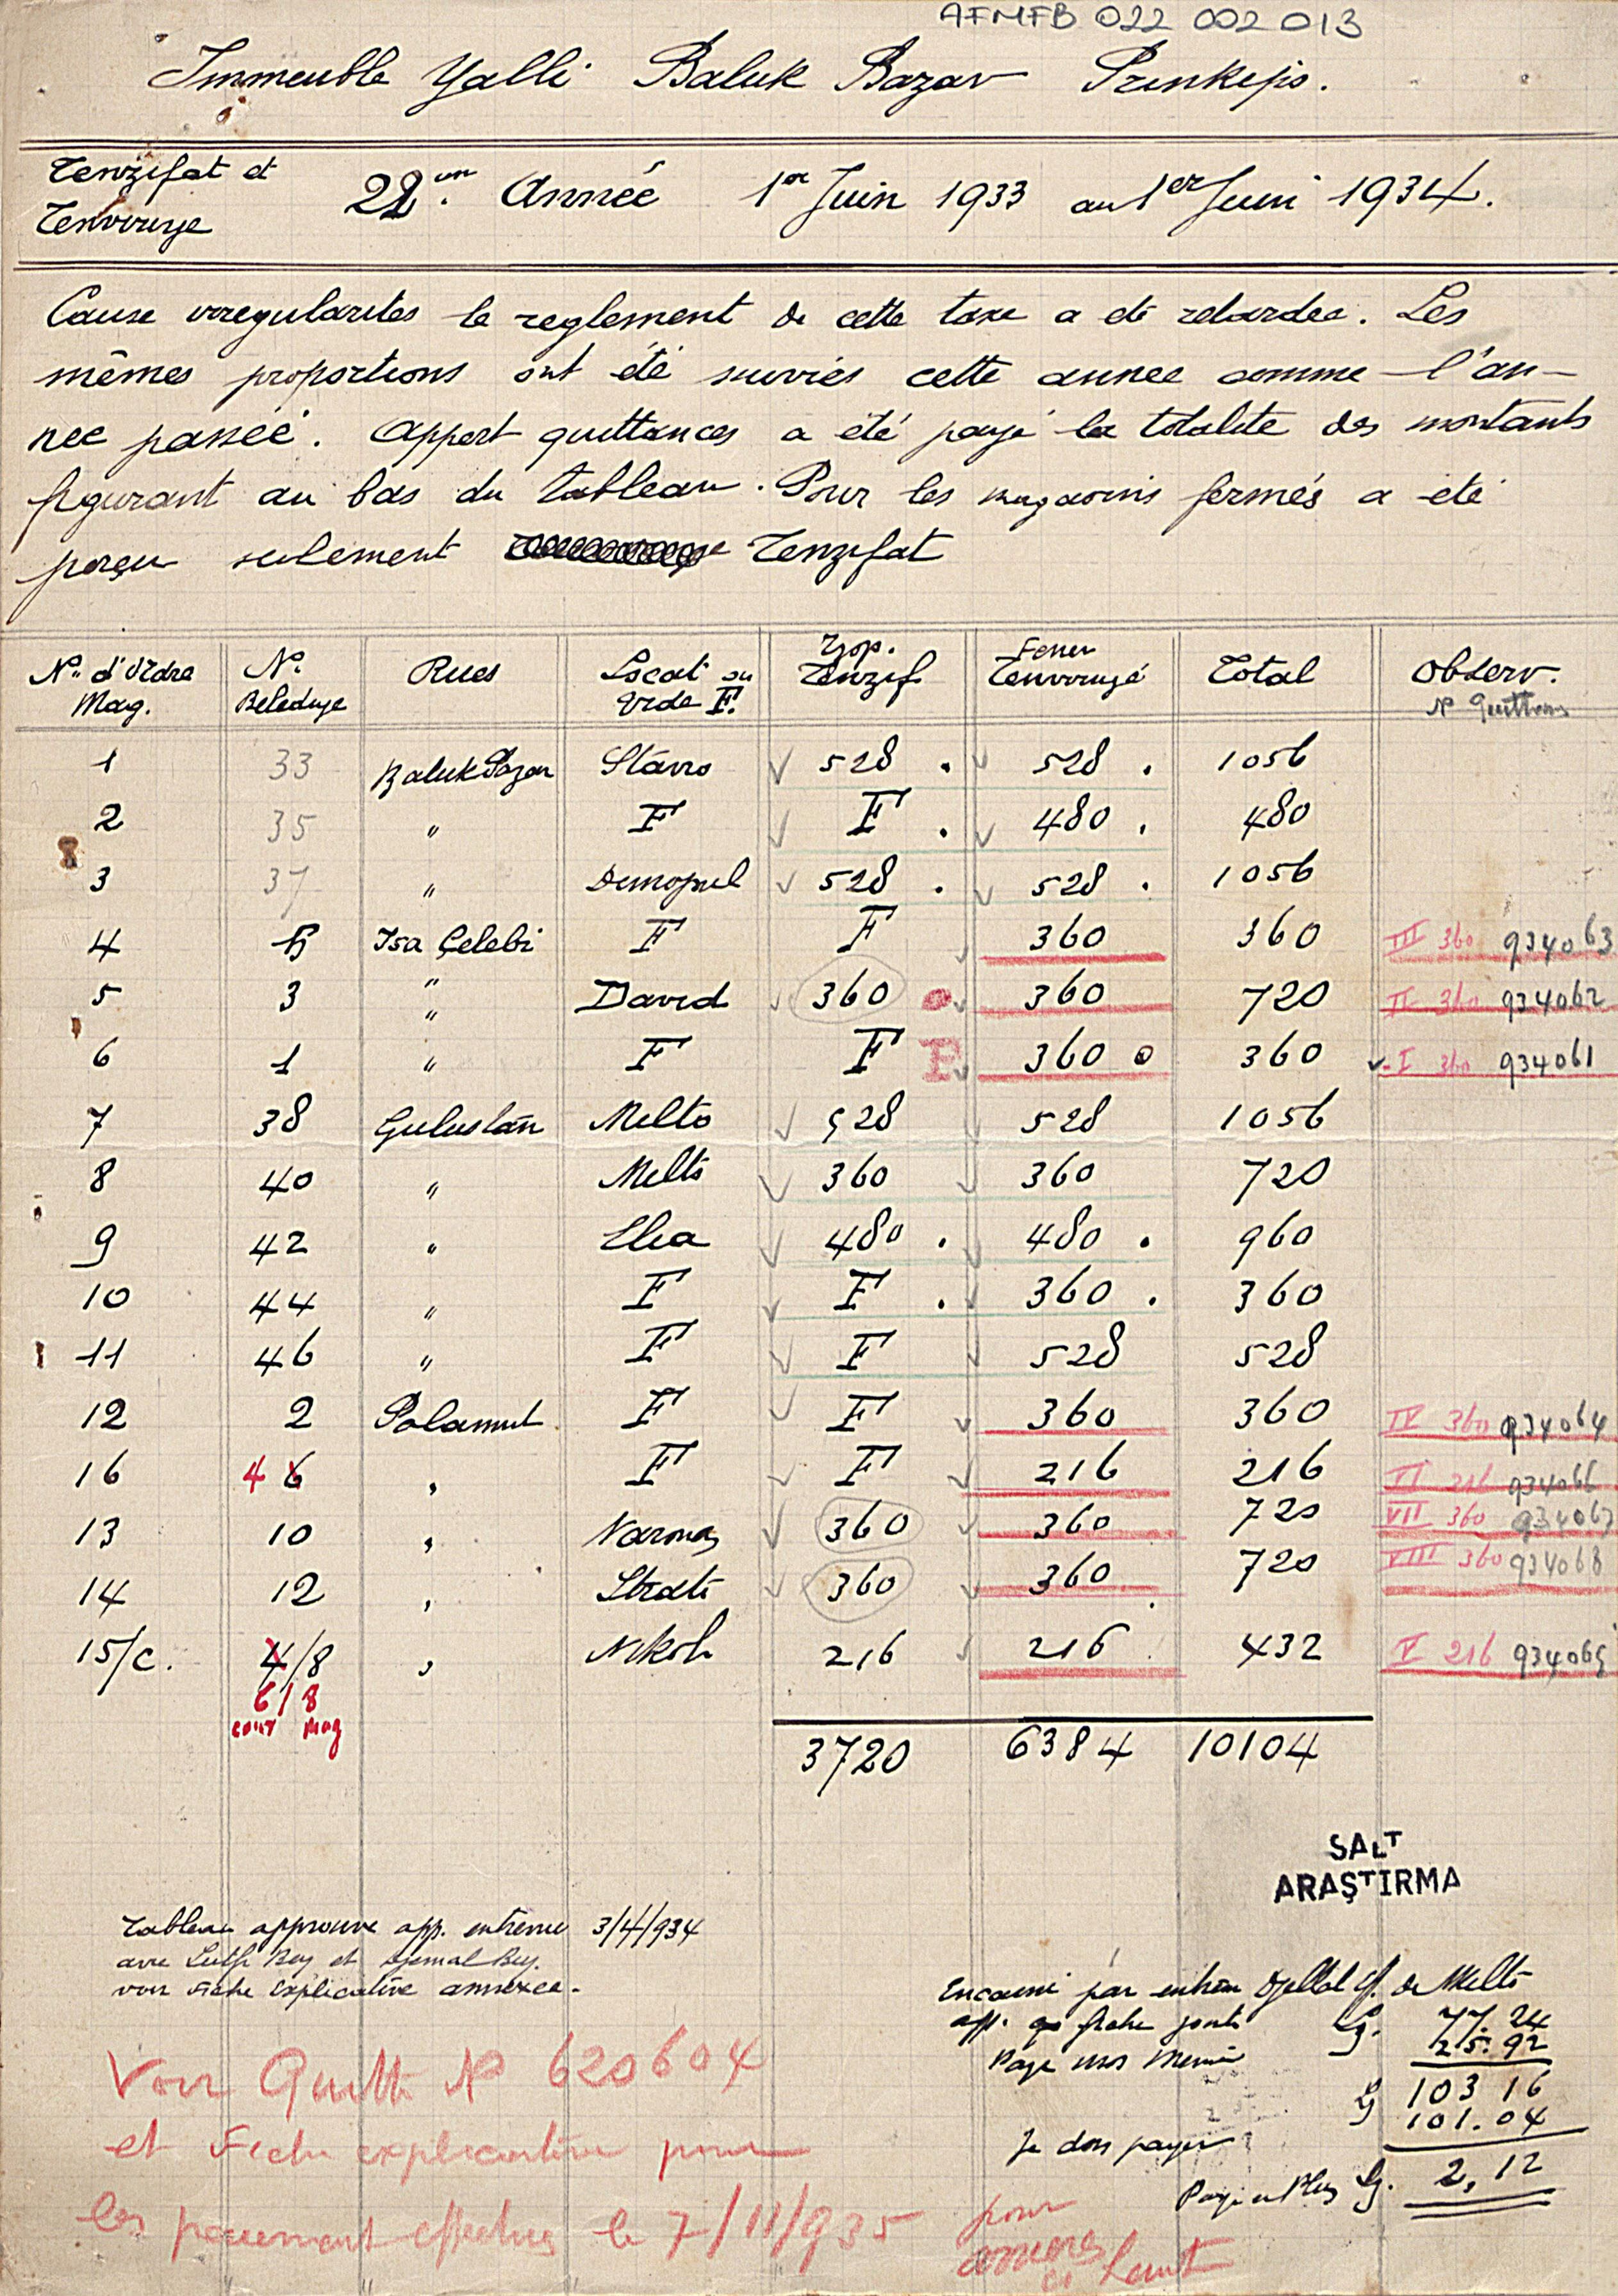 AFMFB 022 002 013
Immeuble Yalli Baluk Bazar Prinkipo.
Tenzifat et
Tenviriye
22em. Année 1er Juin 1933 au 1er Juin 1934.
Cause irregularites le reglement de cette taxe a été retardée. Les
mêmes proportions ont été suivies cette année comme l'an-
née passée. Appert quittances a été payé la totalite des montants
figurant au bas du tableau. Pour les magasins fermés a été
perçu seulement Tenzifat
No d'Ordre Mag. No. Belediye Rues Locat ou Vide F. Tenzif Tenviriyé Total Observ. No Quittanc
1 33 Baluk Bazar Stavro 528 528 1056
2 35 " F F 480 480
3 37 " Dimopul 528 528 1056
4 5 Isa Çelebi F F 360 360 III 360 934063
5 3 " David 360 360 720 II 360 934062
6 1 " F F F 360 360 I 360 934061
7 38 Gulustan Melto 528 528 1056
8 40 " Melto 360 360 720
9 42 " Ilia 480 480 960
10 44 " F F 360 360
11 46 " F F 528 528
12 2 Palamut F F 360 360 IV 360 934064
16 4 6 " F F 216 216 VI 216 934066
13 10 " 360 360 720 VII 360 934067
14 12 " Strati 360 360 720 VIII 360 934068
15/c. 4/8 " Nikoli 216 216 432 V 216 934065
6/8
cour mag
3720 6384 10104
SALT
ARAŞTIRMA
Tableau approuve app. entrevue 3/4/934
avec Lutfi Bey et Djemal Bey.
voir Fiche explicative annexée.
Encaissé par Djellal de Melto
fiche jointe Lg. 77.24
Payé 25.92
Lg 103 16
Je dois payer 101.04
Payé en Plus Lg. 2,12
Voir Quitt No 620604
et Fiche explicative pour
les paiement effectués le 7/11/935 pour